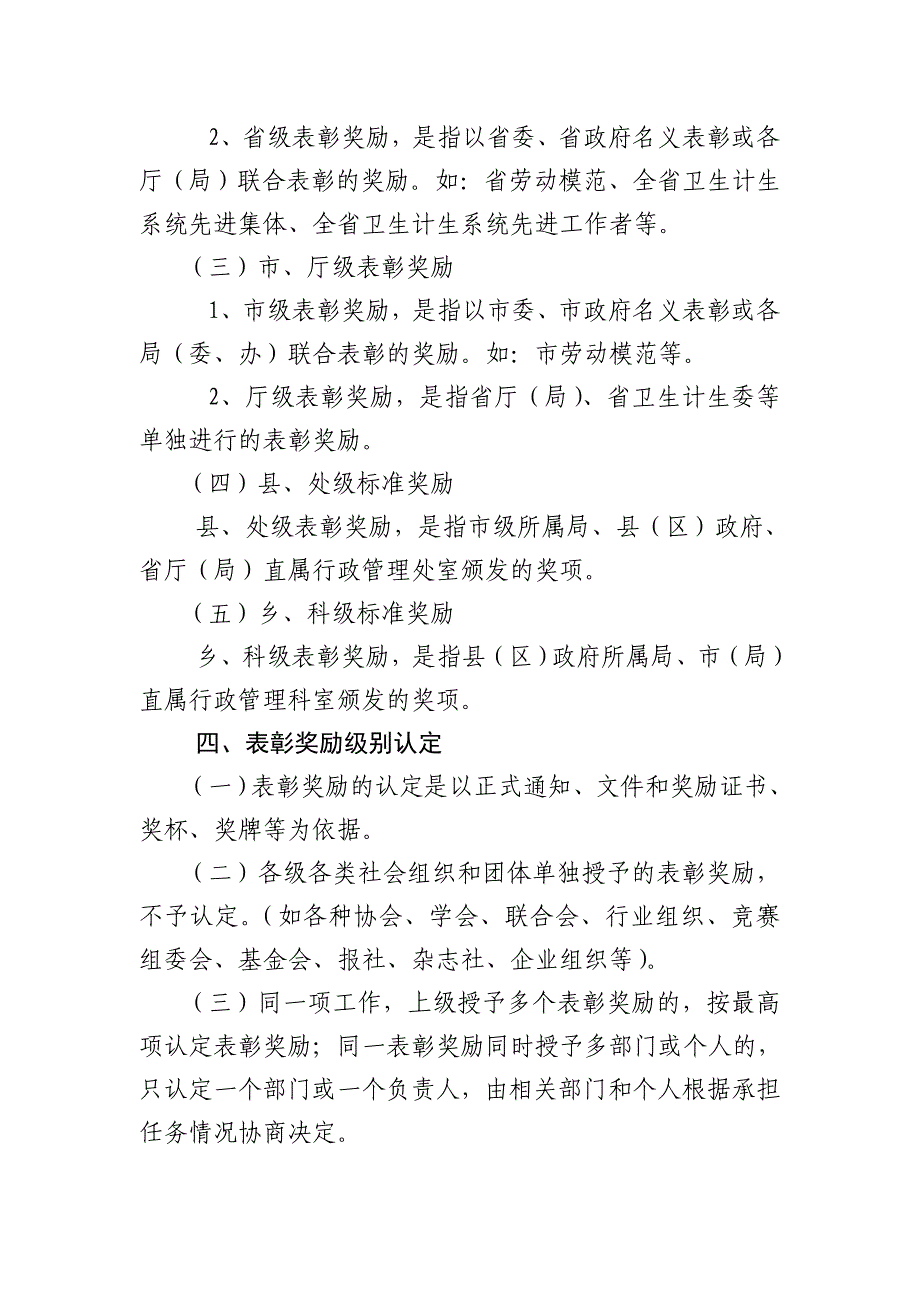 2、省级表彰奖励，是指以省委、省政府名义表彰或各
厅（局）联合表彰的奖励。如：省劳动模范、全省卫生计生
系统先进集体、全省卫生计生系统先进工作者等。
（三）市、厅级表彰奖励
1、市级表彰奖励，是指以市委、市政府名义表彰或各
局（委、办）联合表彰的奖励。如：市劳动模范等。
2、厅级表彰奖励，是指省厅（局）、省卫生计生委等
单独进行的表彰奖励。
（四）县、处级标准奖励
县、处级表彰奖励，是指市级所属局、县（区）政府、
省厅（局）直属行政管理处室颁发的奖项。
（五）乡、科级标准奖励
乡、科级表彰奖励，是指县（区）政府所属局、市（局）
直属行政管理科室颁发的奖项。
四、表彰奖励级别认定
（一）表彰奖励的认定是以正式通知、文件和奖励证书、
奖杯、奖牌等为依据。
（二）各级各类社会组织和团体单独授予的表彰奖励，
不予认定。（如各种协会、学会、联合会、行业组织、竞赛
组委会、基金会、报社、杂志社、企业组织等）。
（三）同一项工作，上级授予多个表彰奖励的，按最高
项认定表彰奖励；同一表彰奖励同时授予多部门或个人的，
只认定一个部门或一个负责人，由相关部门和个人根据承担
任务情况协商决定。